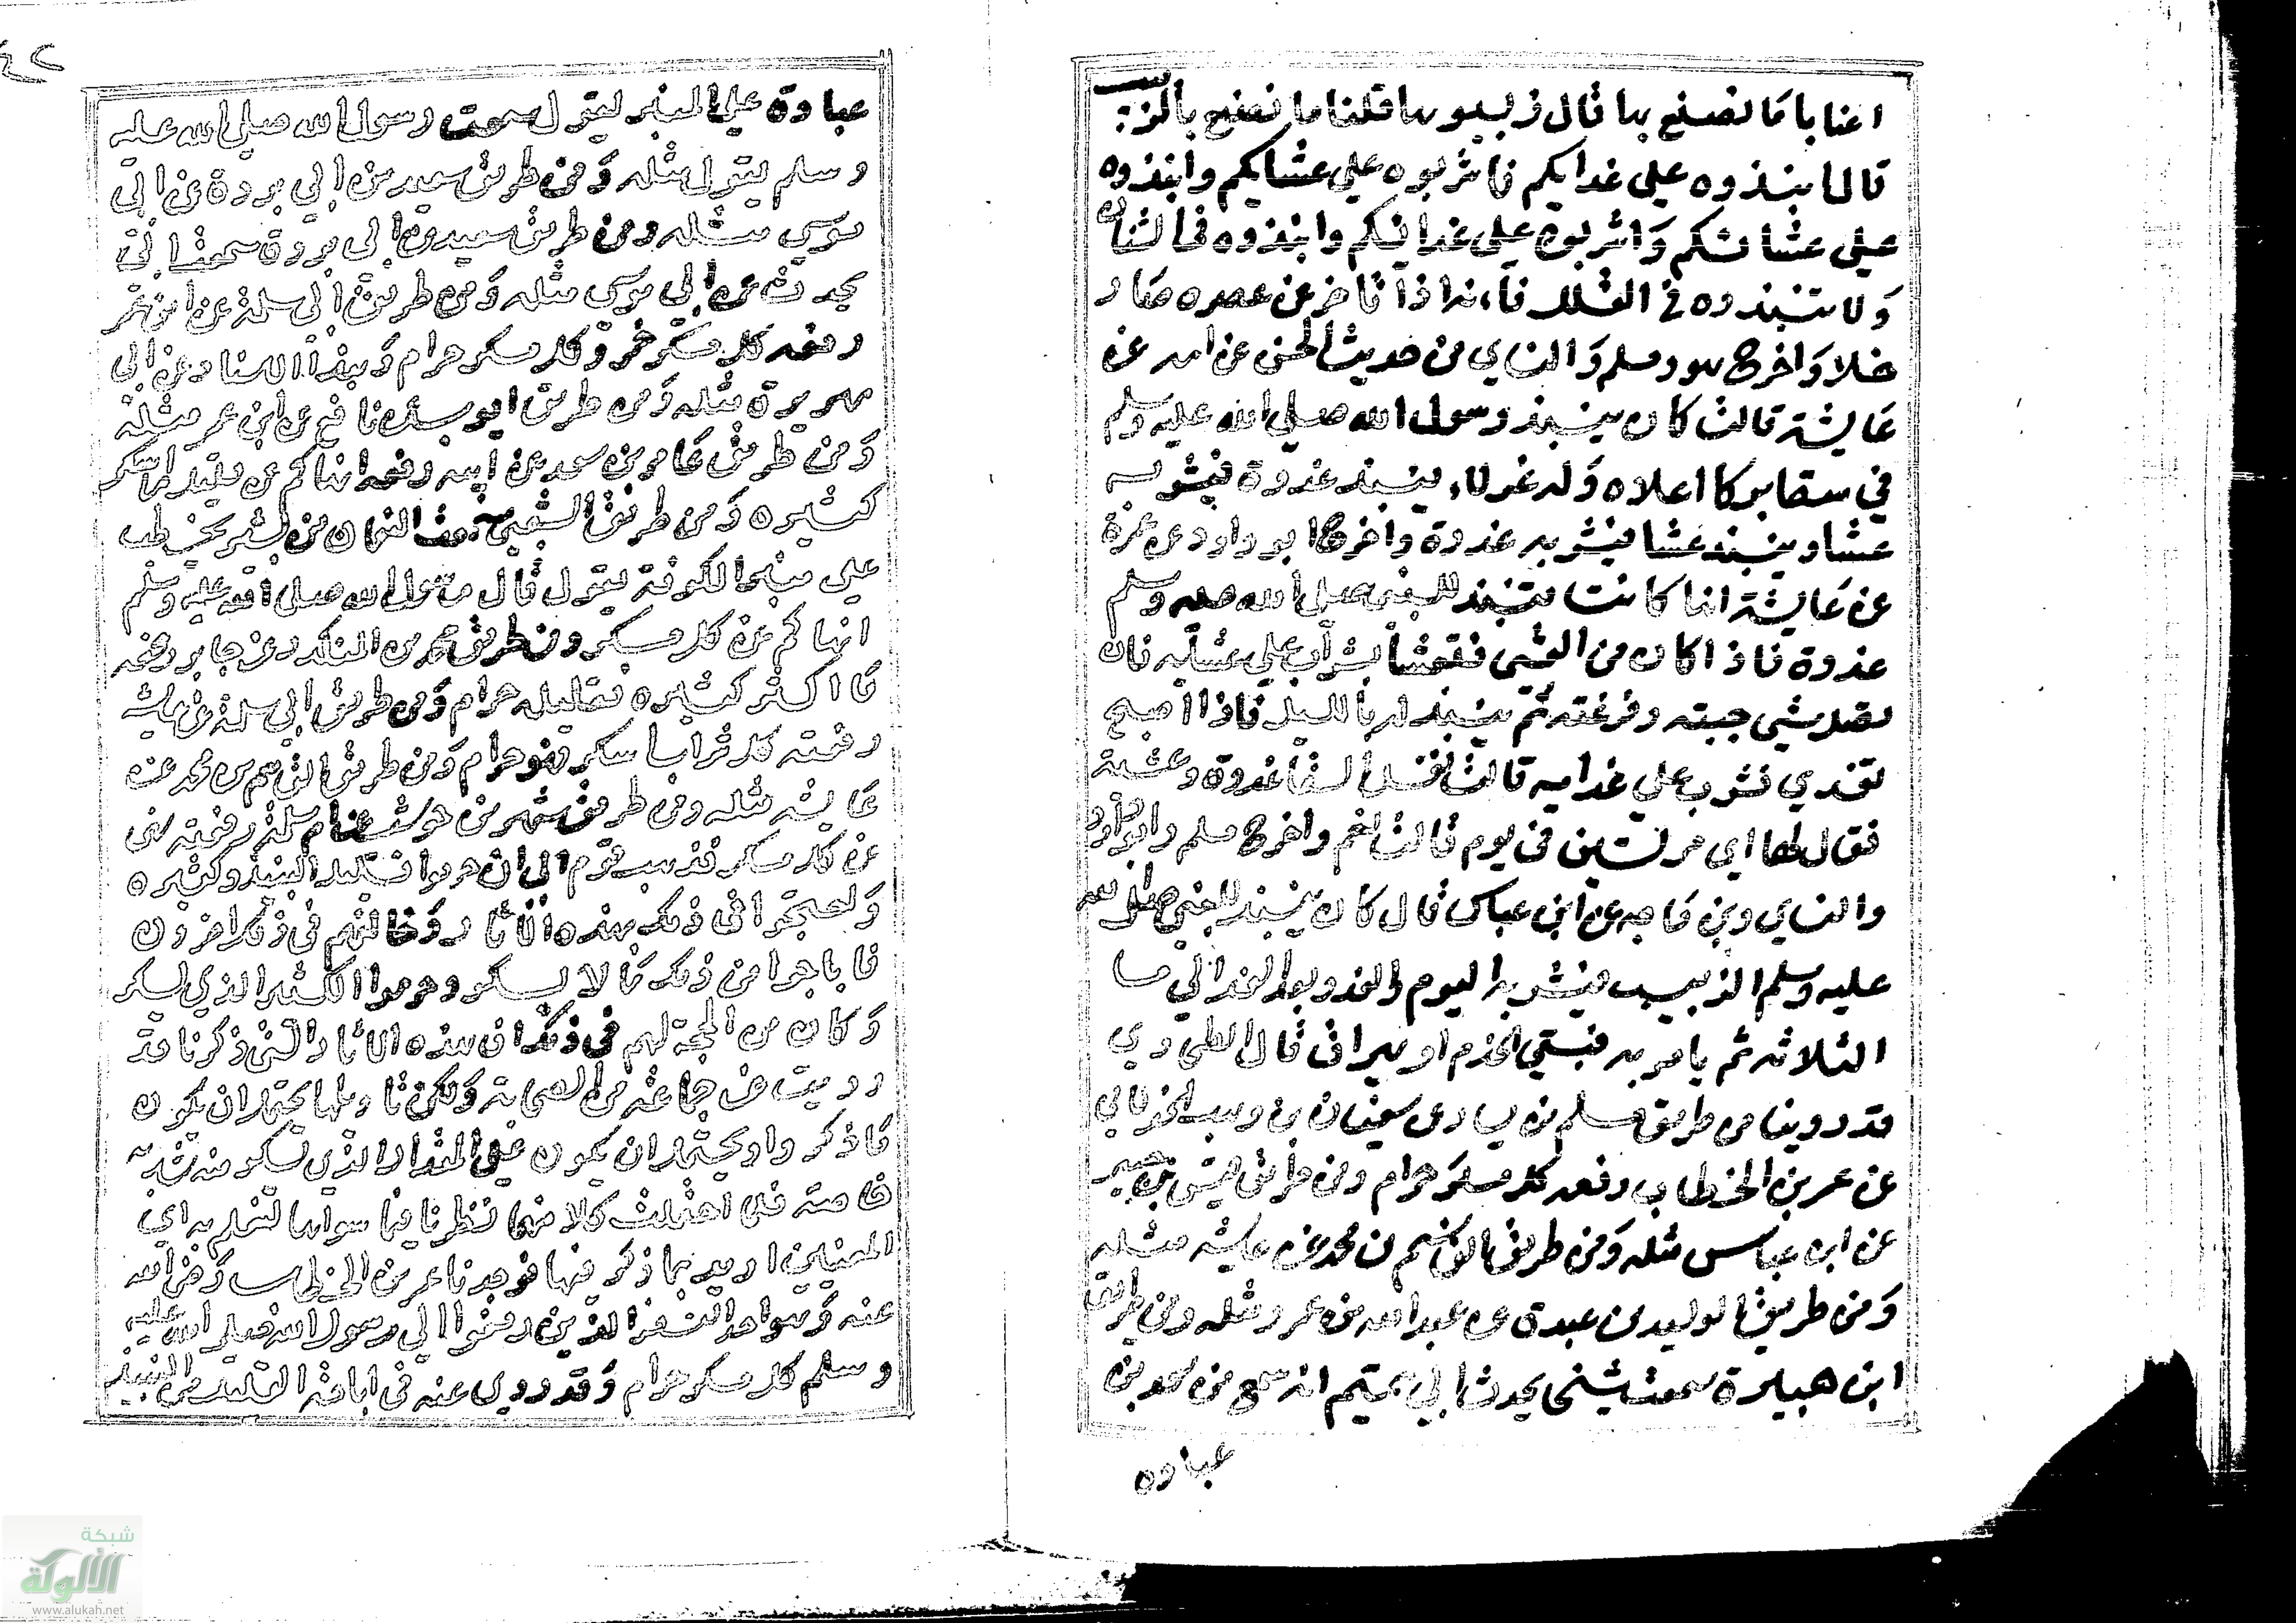 اعنابا ما نصنع بها قال زببوها قلنا ما نصنع بالزبيب
قال انبذوه علي غدايكم فاشربوه علي عشايكم وانبذوه
علي عشائكم واشربوه علي غدائكم وانبذوه في الشنان
ولا تنبذوه في القلل فانه اذا تاخر عن عصره صار
خلا واخرج هو ومسلم والنساي من حديث الحسن عن امه عن
عايشة قالت كان ينبذ رسول الله صلي الله عليه وسلم
في سقا يوكا اعلاه وله عزلاء ينبذ غدوة فيشربه
عشا وينبذ عشا فيشربه غدوة واخرج ابو داود عن عمرة
عن عايشة انها كانت تنبذ للنبي صلي الله عليه وسلم
غدوة فاذا كان من العشي فتعشا شرب علي عشايه فان
فضل شي صبته وفرغته ثم ينبذ له بالليل فاذا اصبح
تغدي فشرب علي غدايه قالت نغسل السقا غدوة وعشية
فقال لها ابي مرتين في يوم قالت نعم واخرج مسلم وابو داود
والنساي وبن ماجه عن ابن عباس قال كان ينبذ للنبي صلي الله
عليه وسلم الزبيب فيشربه اليوم والغد وبعد الغد الي مسا
الثلاثه ثم يامر به فيسقي الخدم او يهراق قال الطحاوي
قد روينا من طريق مسلم بن يسار عن سفيان بن وهب الخولاني
عن عمر بن الخطاب رفعه كل مسكر حرام ومن طريق قيس بن حبتر
عن ابن عباس مثله ومن طريق القاسم بن محمد عن عايشه مثله
ومن طريق الوليد بن عبدة عن عبد الله بن عمرو مثله ومن طريق
ابن هبيرة سمعت شيخا يحدث ابي تميم انه سمع من سعد بن
عباده
عبادة علي المنبر يقول سمعت رسول الله صلي الله عليه
وسلم يقول مثله ومن طريق سعيد بن ابي بردة عن ابي
موسي مثله ومن طريق سعيد بن ابي بردة سمعت ابي
يحدث عن ابي موسي مثله ومن طريق ابي سلمة عن ابن عمر
رفعه كل مسكر خمر وكل مسكر حرام وبهذا الاسناد عن ابي
هريرة مثله ومن طريق ايوب عن نافع عن ابن عمر مثله
ومن طريق عامر بن سعد عن ابيه رفعه انهاكم عن قليل ما اسكر
كثيره ومن طريق الشعبي سمعت النعمان بن بشير يخطب
علي منبر الكوفة يقول قال رسول الله صلي الله عليه وسلم
انهاكم عن كل مسكر ومن طريق محمد بن المنكدر عن جابر رفعه
ما اسكر كثيره فقليله حرام ومن طريق ابي سلمة عن عايشة
رفعته كل شراب اسكر فهو حرام ومن طريق القاسم بن محمد عن
عايشه مثله ومن طريق شهر بن حوشب عن ام سلمة رفعته نهي
عن كل مسكر فذهب قوم الي ان حرموا قليل النبيذ وكثيره
واحتجوا في ذلك بهذه الاثار وخالفهم في ذلك اخرون
فاباحوا من ذلك ما لا يسكر وحرموا الكثير الذي يسكر
وكان من الحجة لهم في ذلك ان هذه الاثار التي ذكرنا قد
رويت عن جماعة من الصحابة ولكن تاويلها يحتمل ان يكون
ما ذكروا ويحتمل ان يكون علي المقدار الذي يسكر منه شاربه
خاصة فلما احتملت كلا منهما نظرنا فيما سواها لنعلم به اي
المعنيين اريد بما ذكر فيها فوجدنا عمر بن الخطاب رضي الله
عنه وهو احد النفر الذين رفعوا الي رسول الله صلي الله عليه
وسلم كل مسكر حرام وقد روي عنه في اباحة القليل من النبيذ
شبكة
الألوكة
www.alukah.net